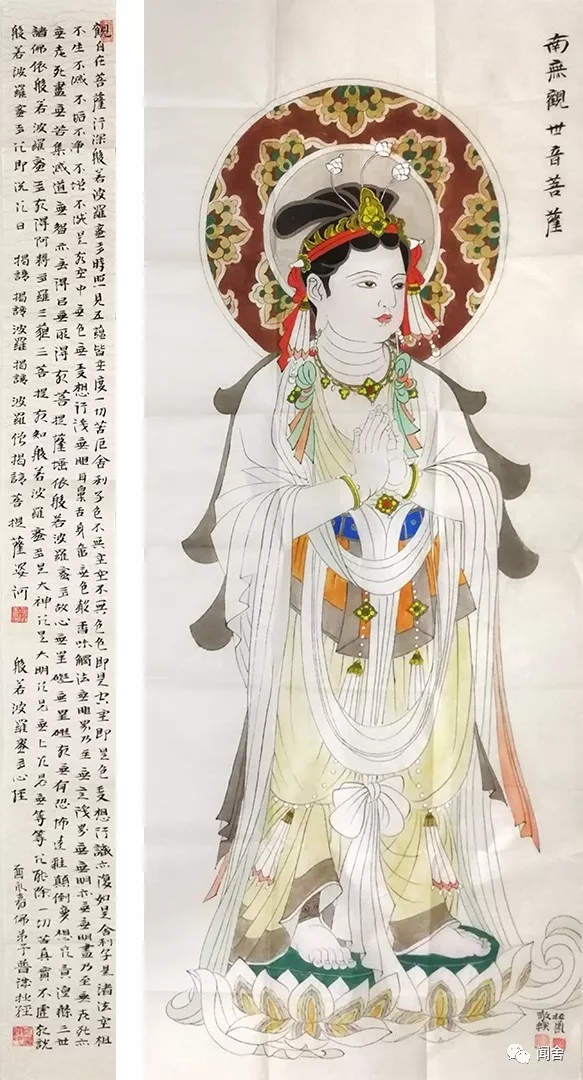 南無觀世音菩薩
觀自在菩薩行深般若波羅蜜多時照見五蘊皆空度一切苦厄舍利子色不異空空不異色色即是空空即是色受想行識亦復如是舍利子是諸法空相
不生不滅不垢不淨不增不減是故空中無色無受想行識無眼耳鼻舌身意無色聲香味觸法無眼界乃至無意識界無無明亦無無明盡乃至無老死亦
無老死盡無苦集滅道無智亦無得以無所得故菩提薩埵依般若波羅蜜多故心無罣礙無罣礙故無有恐怖遠離顛倒夢想究竟涅槃三世
諸佛依般若波羅蜜多故得阿耨多羅三藐三菩提故知般若波羅蜜多是大神咒是大明咒是無上咒是無等等咒能除一切苦真實不虛故說
般若波羅蜜多咒即說咒曰 揭諦揭諦波羅揭諦波羅僧揭諦菩提薩婆訶 般若波羅蜜多心經 佛弟子普
闻舍